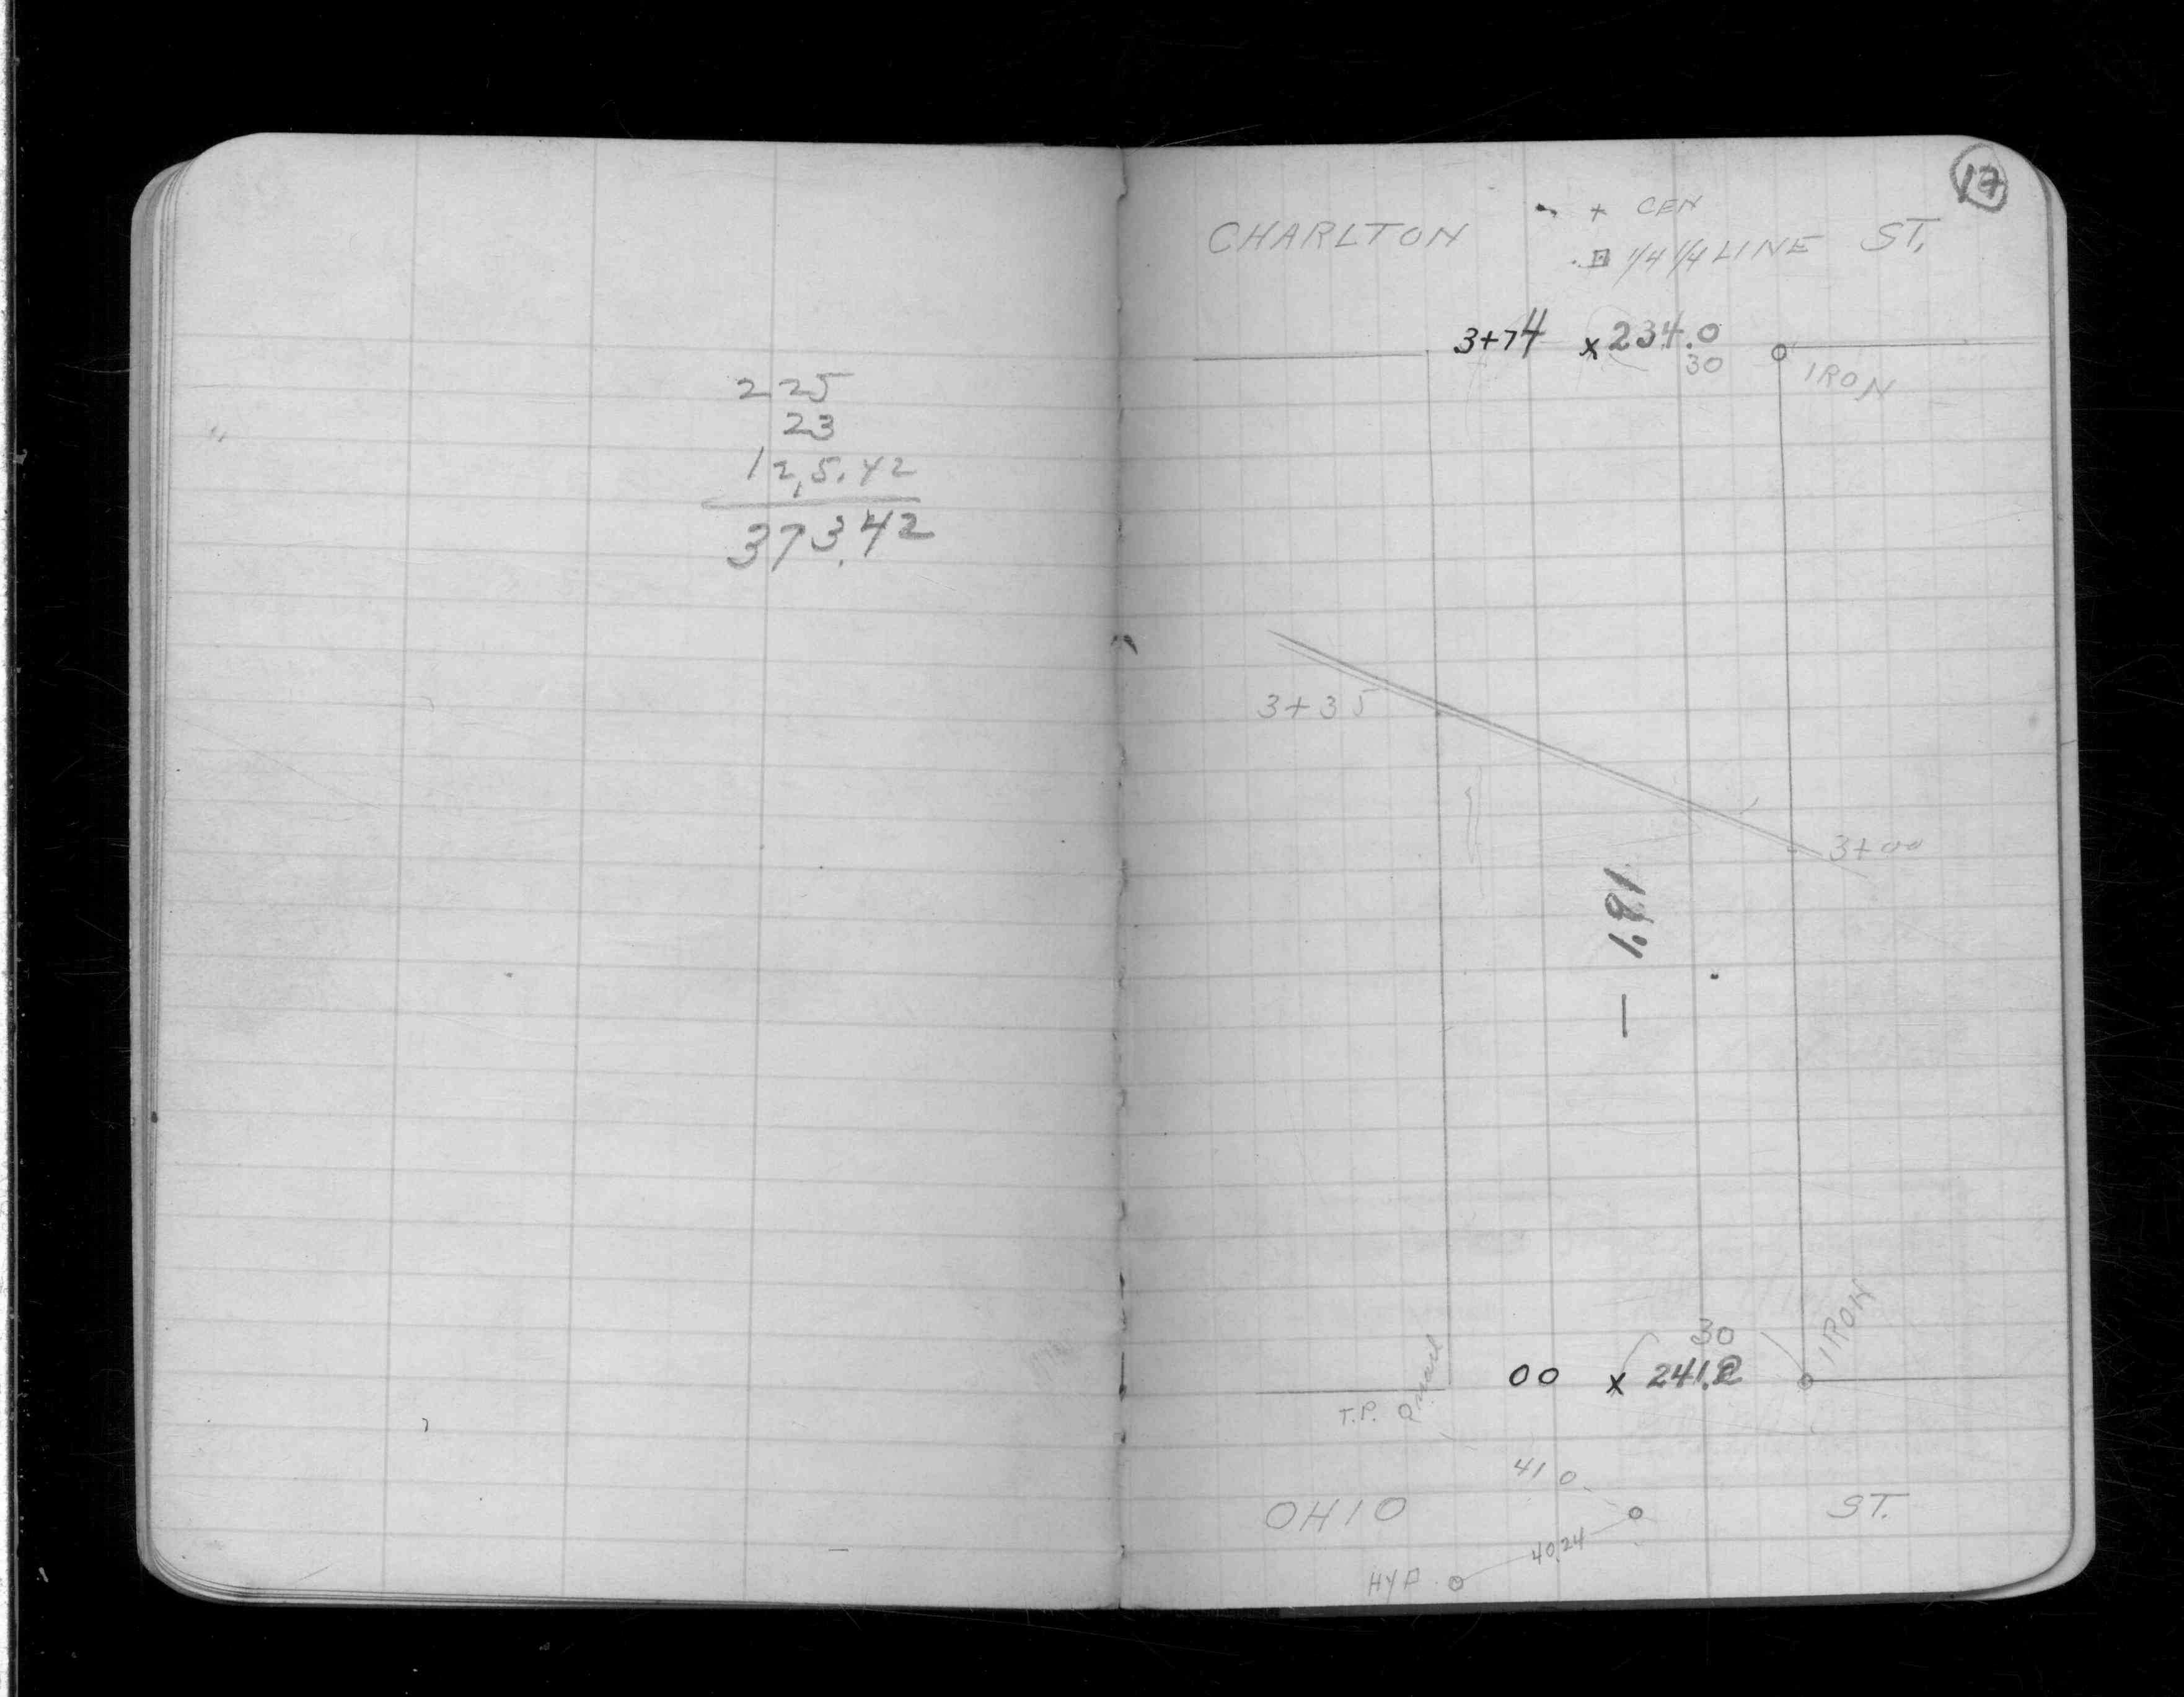 225
23
125.42
373.42
17
+ CEN
CHARLTON ST.
1/4 1/4 LINE
3+74 x 234.0
30
IRON
3+35
3+00
— 1.91
IRON
30
00 x 241.2
T.P.
41.0
OHIO ST.
40.24
HYD